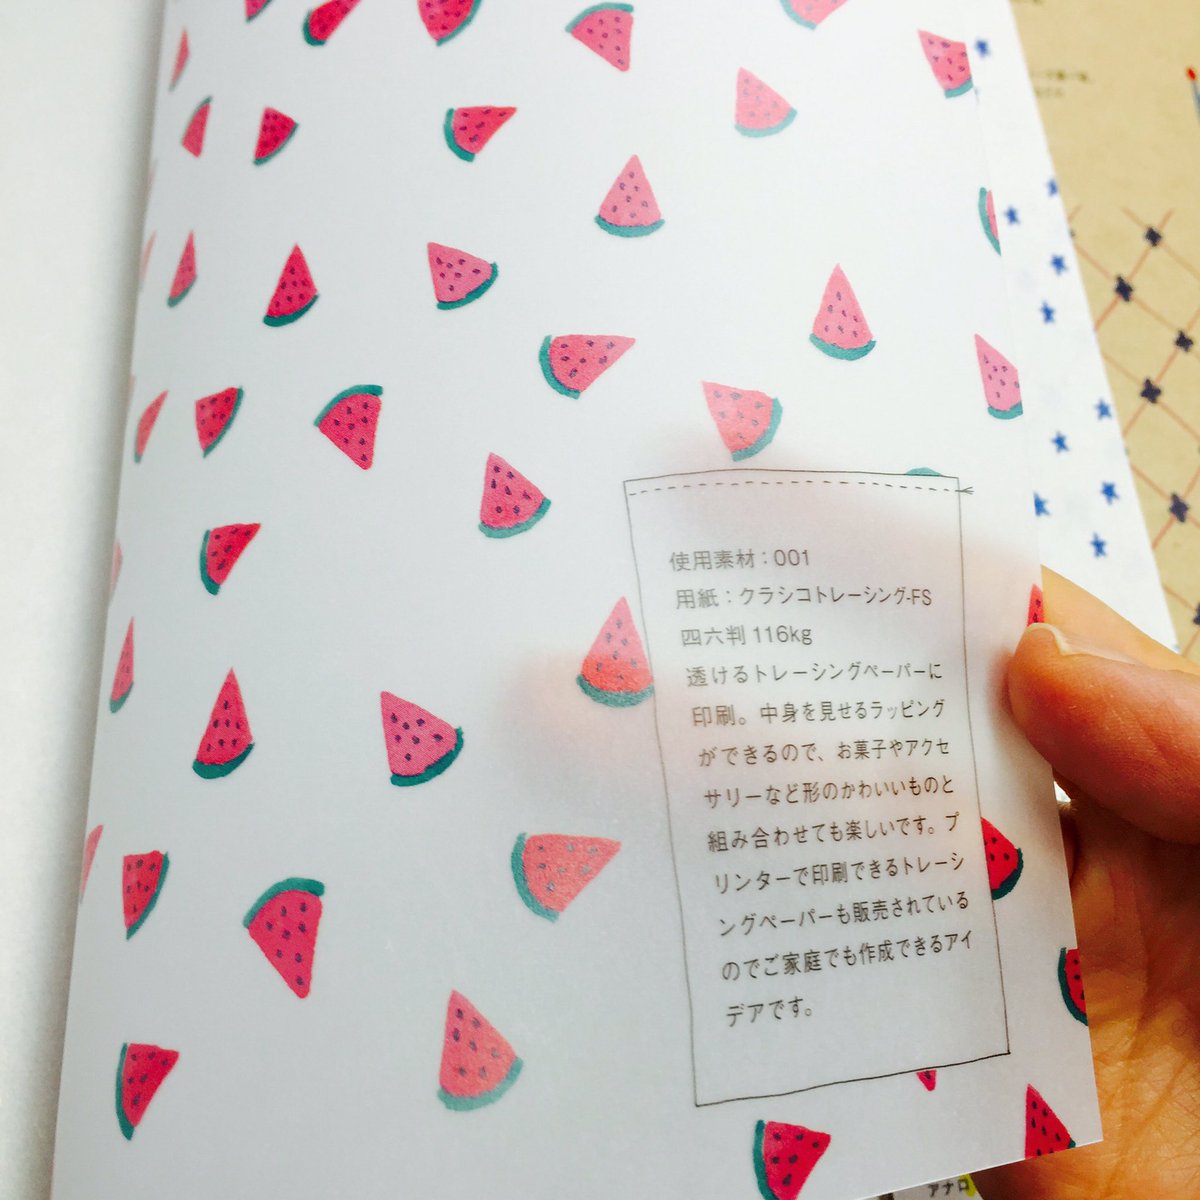 使用素材：001
用紙：クラシコトレーシング-FS
四六判 116kg
透けるトレーシングペーパーに
印刷。中身を見せるラッピング
ができるので、お菓子やアクセ
サリーなど形のかわいいものと
組み合わせても楽しいです。プ
リンターで印刷できるトレーシ
ングペーパーも販売されている
のでご家庭でも作成できるアイ
デアです。
アナロ